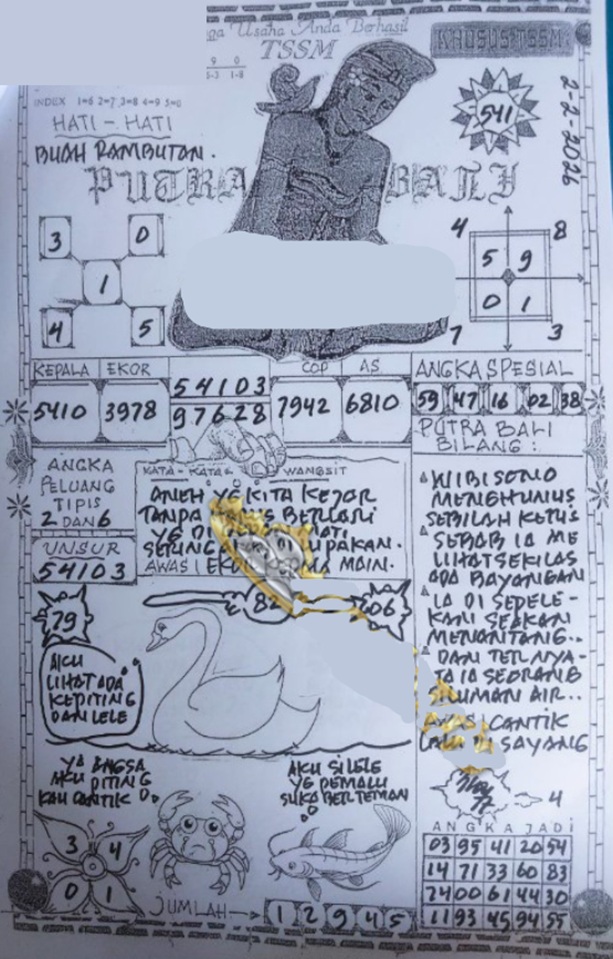 Usaha Anda Berhasil
TSSM
KHUSUS TSSM
9 0
5-3 1-8
INDEX 1=6 2=7 3=8 4=9 5=0
HATI - HATI
BUAH RAMBUTAN.
541
2-2-2026
PUTRA BALI
3 0
1
4 5
4 8
5 9
0 1
7 3
KEPALA EKOR
5410 3978
54103
97628
COP AS
7942 6810
ANGKA SPESIAL
59 47 16 02 38
PUTRA BALI
BILANG :
ANGKA
PELUANG
TIPIS
2 DAN 6
UNSUR
54103
KATA - KATA & WANGSIT
ANEH YG KITA KEJAR
TANPA BERLARI
YG DI
DI
AWAS
MAIN.
WIBISONO
MENGHUNUS
SEBILAH KERIS
SEBAB IA ME
LIHAT SEKILAS
ADA BAYANGAN
IA DI SEPELE-
KAN SEAKAN
MENANTANG..
DAN TERNYA-
TA IA SEORANG
SILUMAN AIR..
AWAS CANTIK
SAYANG
79
82
606
AKU
LIHAT ADA
KEPITING
DAN LELE
YA ANGSA
AKU PITING
KAU CANTIK
AKU SI LELE
YG PEMALU
SUKA BERTEMAN
77
4
3 4
0 1
JUMLAH
1 2 9 4 5
ANGKA JADI
03 95 41 20 54
14 71 33 60 83
24 00 61 44 30
11 93 45 94 55